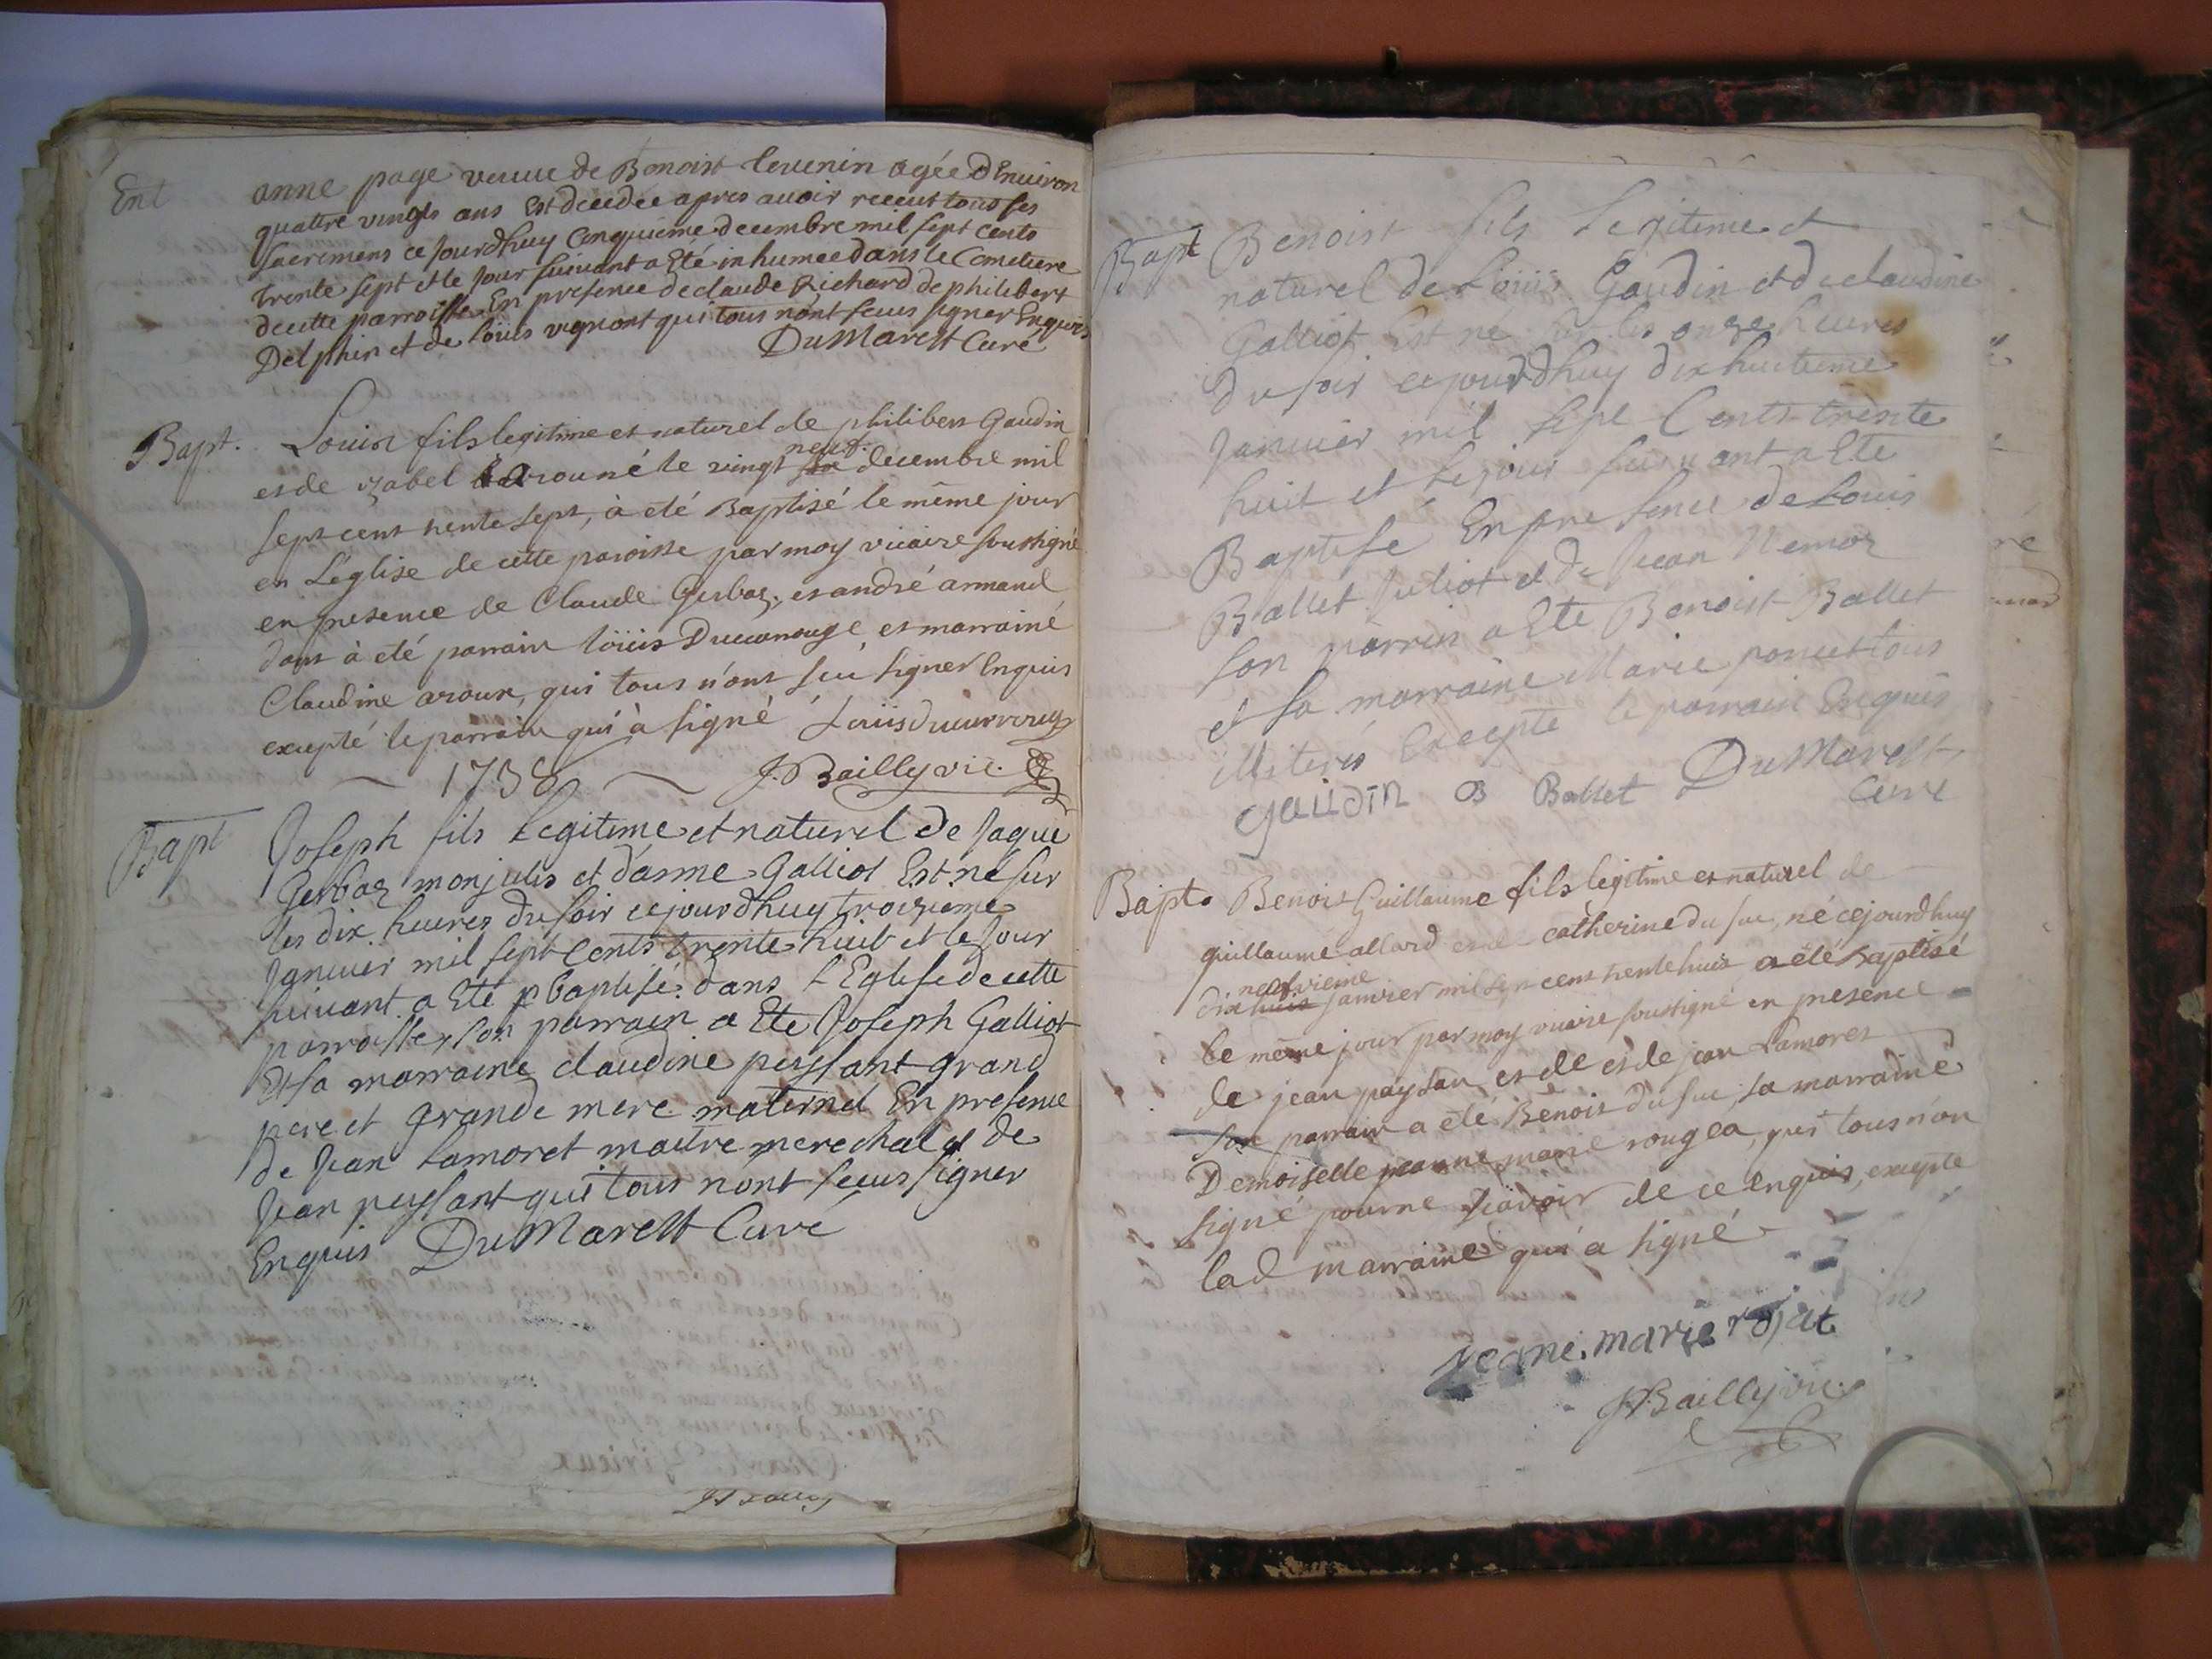 Ent anne page veuve de Benoist Tevenin agée d'Environ
quattre vingts ans Est decedee apres avoir receut tous ses
sacremens ce jourdhuy Cinquieme decembre mil sept cents
trente sept et le jour suivant a Eté inhumee dans le Cemetiere
de cette parroisse En presence de claude Richard de philibert
Delphin et de loüis vignont qui tous n'ont sceus signer Enquis
DuMarest Curé
Bapt. Louis fils legitime et naturel de philibert Gaudin
et de izabel né le vingt neuf decembre mil
sept cent trente sept, à été Baptisé le même jour
en L'église de cette paroisse par moy vicaire soussigné
en presence de Claude Gerbaz, et andré armand
dont à été parrain loüis et marrainé
Claudine aroux, qui tous n'ont sceu signer Enquis
excepté le parrain qui à signé Loüis
1738 J. Bailly vic.
Bapt Joseph fils Legitime et naturel de Jaque
Gerbaz monjulis et d'anne Galliot Est né sur
les dix heures du soir cejourdhuy troizieme
Janvier mil sept Cents trente huit et le jour
suivant a Eté Baptisé dans l'Eglise de cette
parroisse, son parrain a Ete Joseph Galliot
Et sa marraine claudine peyssant grand
pere et grande mere maternel En presence
de Jean Lamoret maitre marechal et de
Jean peyssant qui tous n'ont sceus signer
Enquis DuMarest Curé
Bapt Benoist fils Legitime et
naturel de Loüis Gaudin et de claudine
Galliot Est né sur les onze heures
du soir cejourdhuy dixhuitieme
Janvier mil sept Cents trente
huit et le jour suivant a Ete
Baptisé En presence de Louis
Ballet Juliot et de Jean Nemoz
son parrein a Ete Benoist Ballet
et sa marraine Marie poncet tous
illiterés Excepte le parrain Enquis
gaudin B Ballet DuMarest
Curé
Bapt. Benoist Guillaume fils légitime et naturel de
guillaume allard et de catherine du suc, né cejourdhuy
neufvieme
dix huit janvier mil sept cent trente huit a été baptisé
le même jour par moy vicaire soussigné en presence
de jean paysan et de et de jean Lamoret
son parrain a été Benoit du suc, sa marraine
Demoiselle jeanne marie rougea, qui tous n'on
signé pour ne sçavoir de ce enquis, excepté
lad marraine qui a signé
jeane. marie rojat
J. Bailly vic.